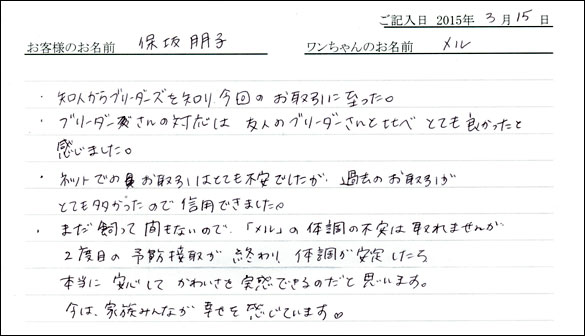 ご記入日 2015年 3月 15日
お客様のお名前 保坂朋子 ワンちゃんのお名前 メル
・知人からブリーダーズを知り、今回のお取引に至った。
・ブリーダーさんの対応は 友人のブリーダーさんと比べ とても良かったと
感じました。
・ネットでのお取引はとても不安でしたが、過去のお取引が
とても多かったので信用できました。
・まだ飼って間もないので、「メル」の体調の不安は取れませんが
2度目の予防接取が終わり 体調が安定したら
本当に安心して かわいさを実感できるのだと思います。
今は、家族みんなが幸せを感じています。